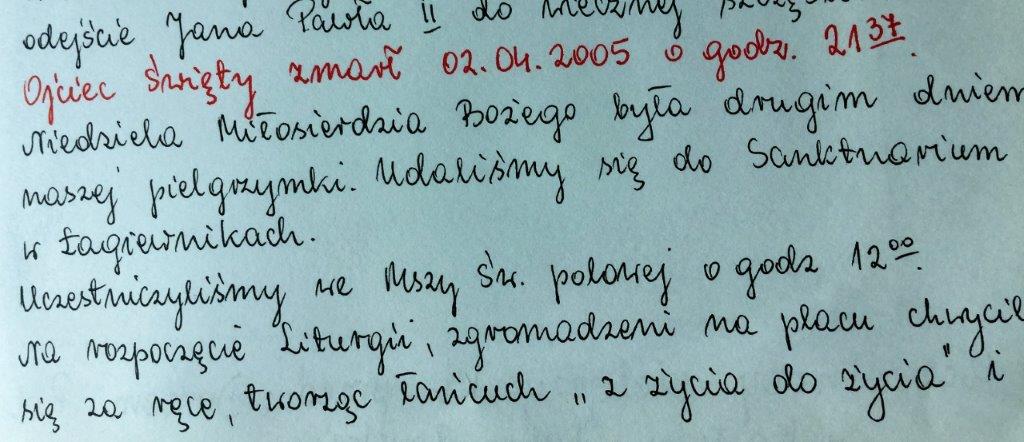 odejście Jana Pawła II do wiecznej
Ojciec Święty zmarł 02.04.2005 o godz. 21 37.
Niedziela Miłosierdzia Bożego była drugim dniem
naszej pielgrzymki. Udaliśmy się do Sanktuarium
w Łagiewnikach.
Uczestniczyliśmy we Mszy Św. polowej o godz 12 00.
Na rozpoczęcie Liturgii, zgromadzeni na placu chwycil
się za ręce, tworząc łańcuch „z życia do życia" i